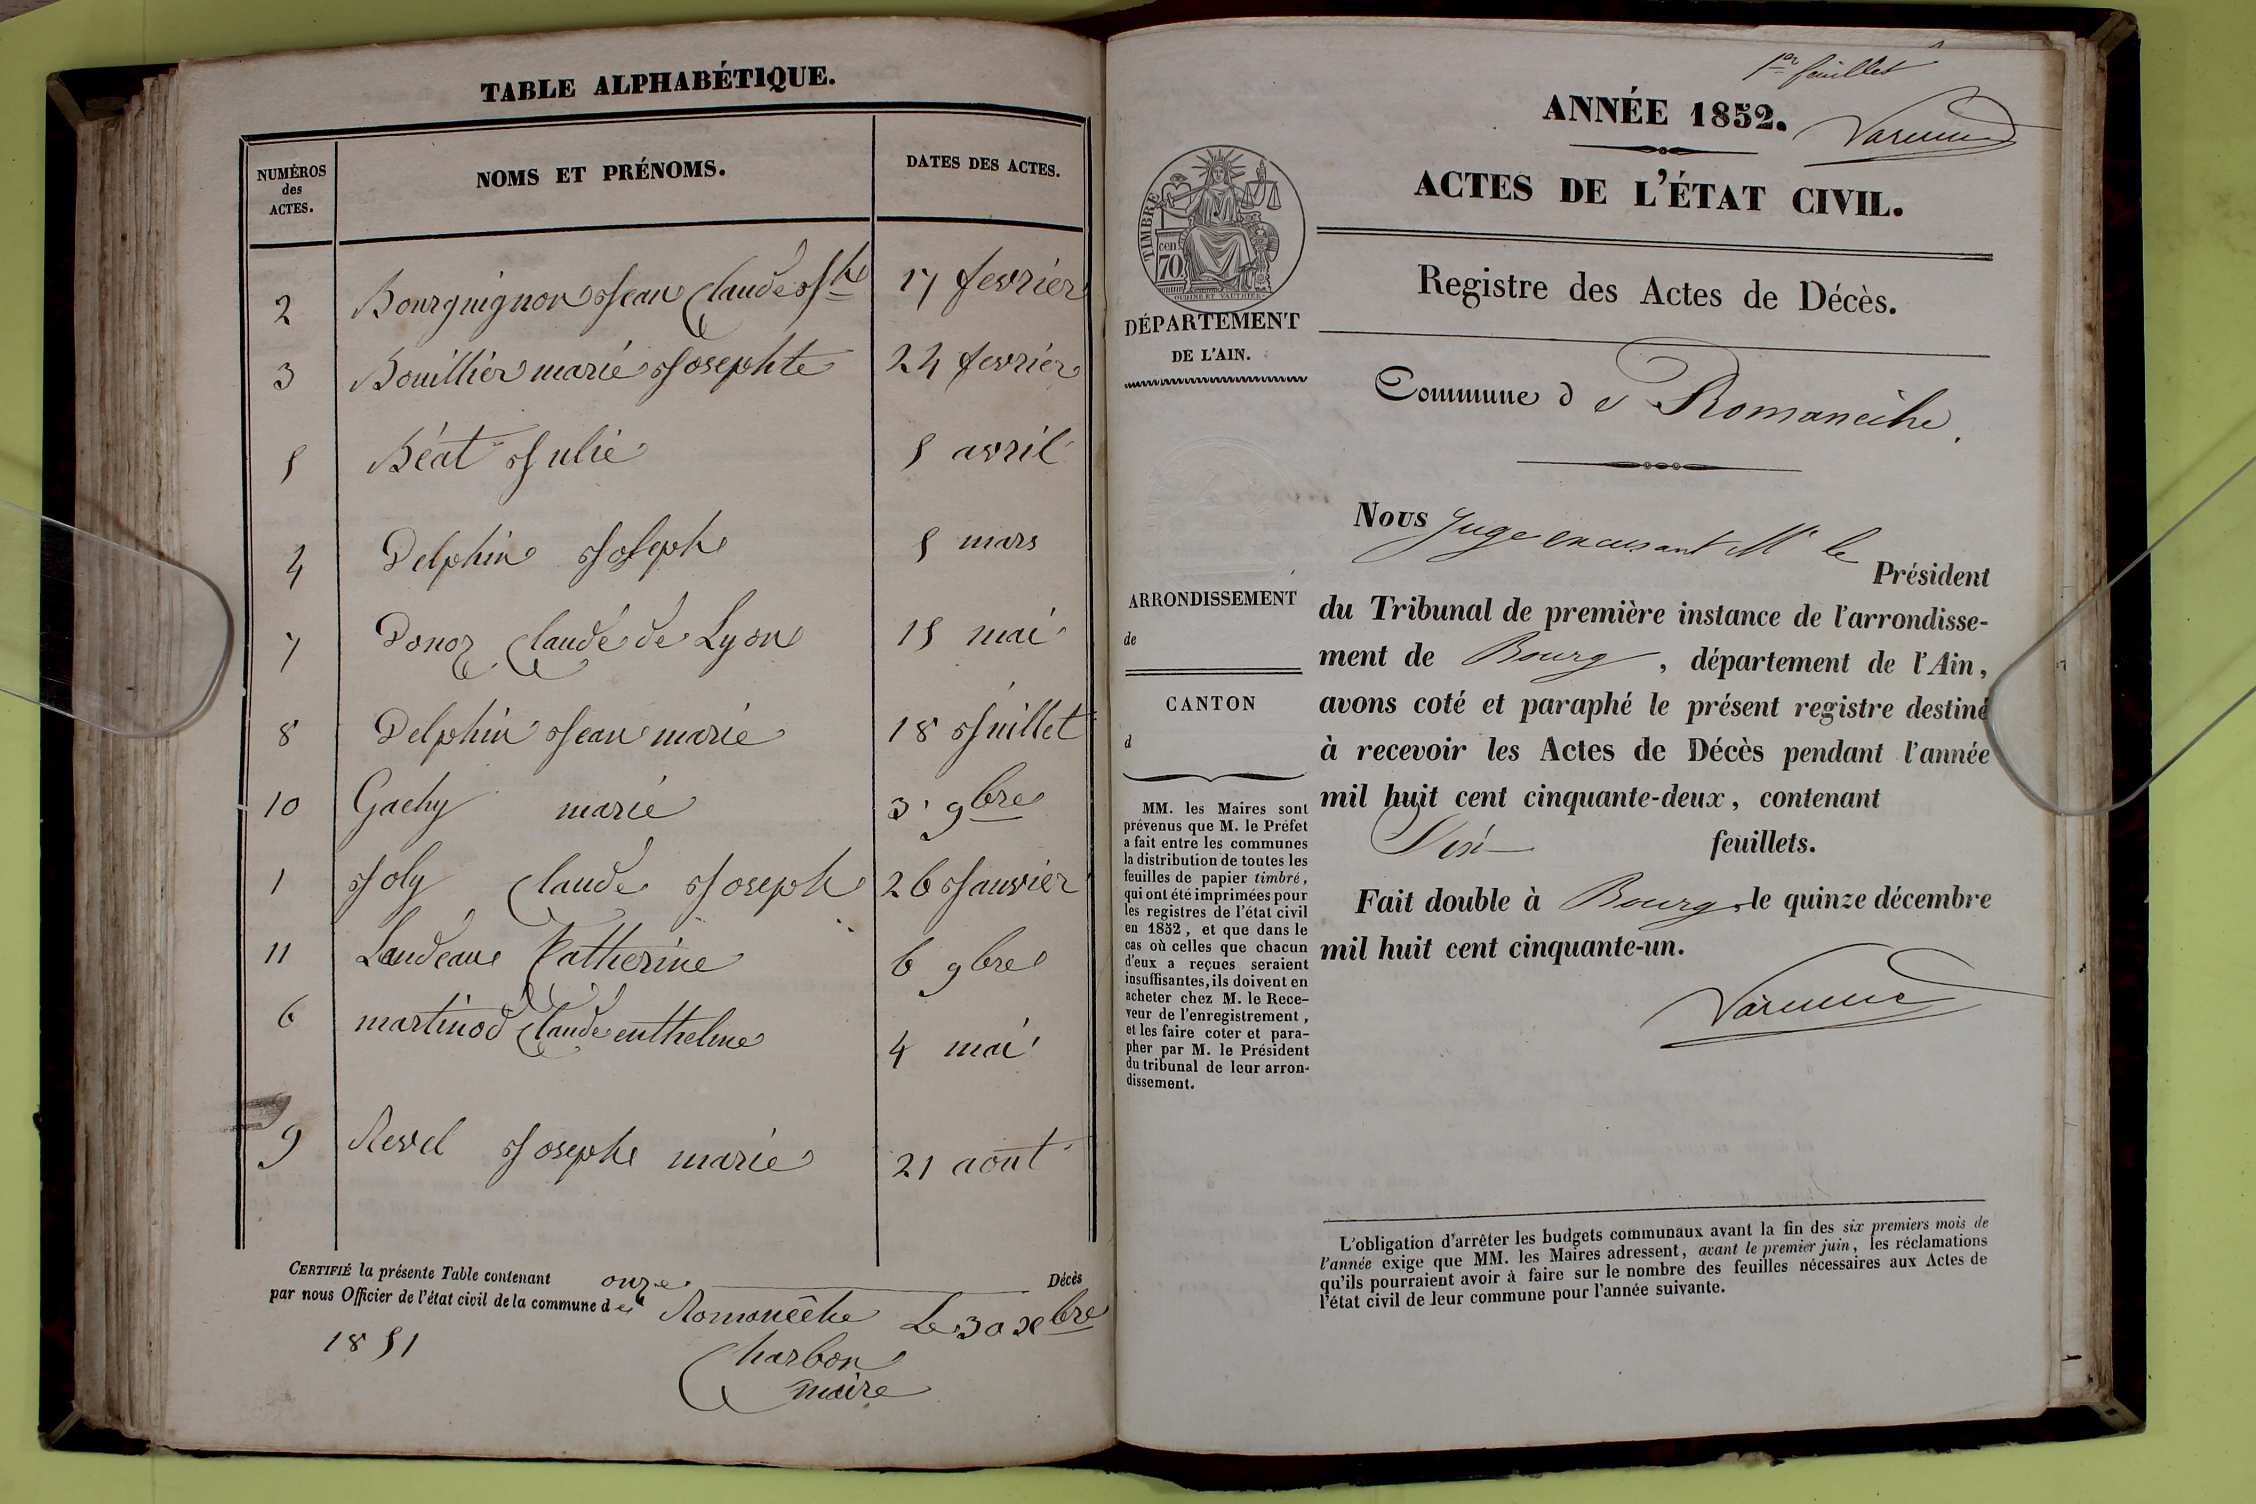 TABLE ALPHABÉTIQUE.
NUMÉROS des ACTES. NOMS ET PRÉNOMS. DATES DES ACTES.
2 Bourguignon Jean Claude Jh 17 fevrier
3 Bouillier marie Josephte 24 fevrier
5 Béat Julie 5 avril
4 Delphin Joseph 5 mars
7 Donoz Claude de Lyon 15 mai
8 Delphin Jean marie 18 Juillet
10 Gachy marie 3 9bre
1 Joly Claude Joseph 26 Janvier
11 Laudeau Catherine 6 9bre
6 martinod Claude enthelme 4 mai
9 Revel Josephe marie 21 aout
CERTIFIÉ la présente Table contenant onze Décès
par nous Officier de l'état civil de la commune de Romanêche Le 30 Xbre
1851
Charbon
maire
1er feuillet
ANNÉE 1852.
ACTES DE L'ÉTAT CIVIL.
TIMBRE
70 cen
OUDINÉ ET VAUTHIER
Registre des Actes de Décès.
DÉPARTEMENT
DE L'AIN.
Commune de Romanêche.
Nous Juge excusant Mr le
Président
du Tribunal de première instance de l'arrondisse-
ment de Bourg, département de l'Ain,
avons coté et paraphé le présent registre destiné
à recevoir les Actes de Décès pendant l'année
mil huit cent cinquante-deux, contenant
Six feuillets.
Fait double à Bourg, le quinze décembre
mil huit cent cinquante-un.
ARRONDISSEMENT
de
CANTON
d
MM. les Maires sont
prévenus que M. le Préfet
a fait entre les communes
la distribution de toutes les
feuilles de papier timbré,
qui ont été imprimées pour
les registres de l'état civil
en 1852, et que dans le
cas où celles que chacun
d'eux a reçues seraient
insuffisantes, ils doivent en
acheter chez M. le Rece-
veur de l'enregistrement,
et les faire coter et para-
pher par M. le Président
du tribunal de leur arron-
dissement.
L'obligation d'arrêter les budgets communaux avant la fin des six premiers mois de
l'année exige que MM. les Maires adressent, avant le premier juin, les réclamations
qu'ils pourraient avoir à faire sur le nombre des feuilles nécessaires aux Actes de
l'état civil de leur commune pour l'année suivante.